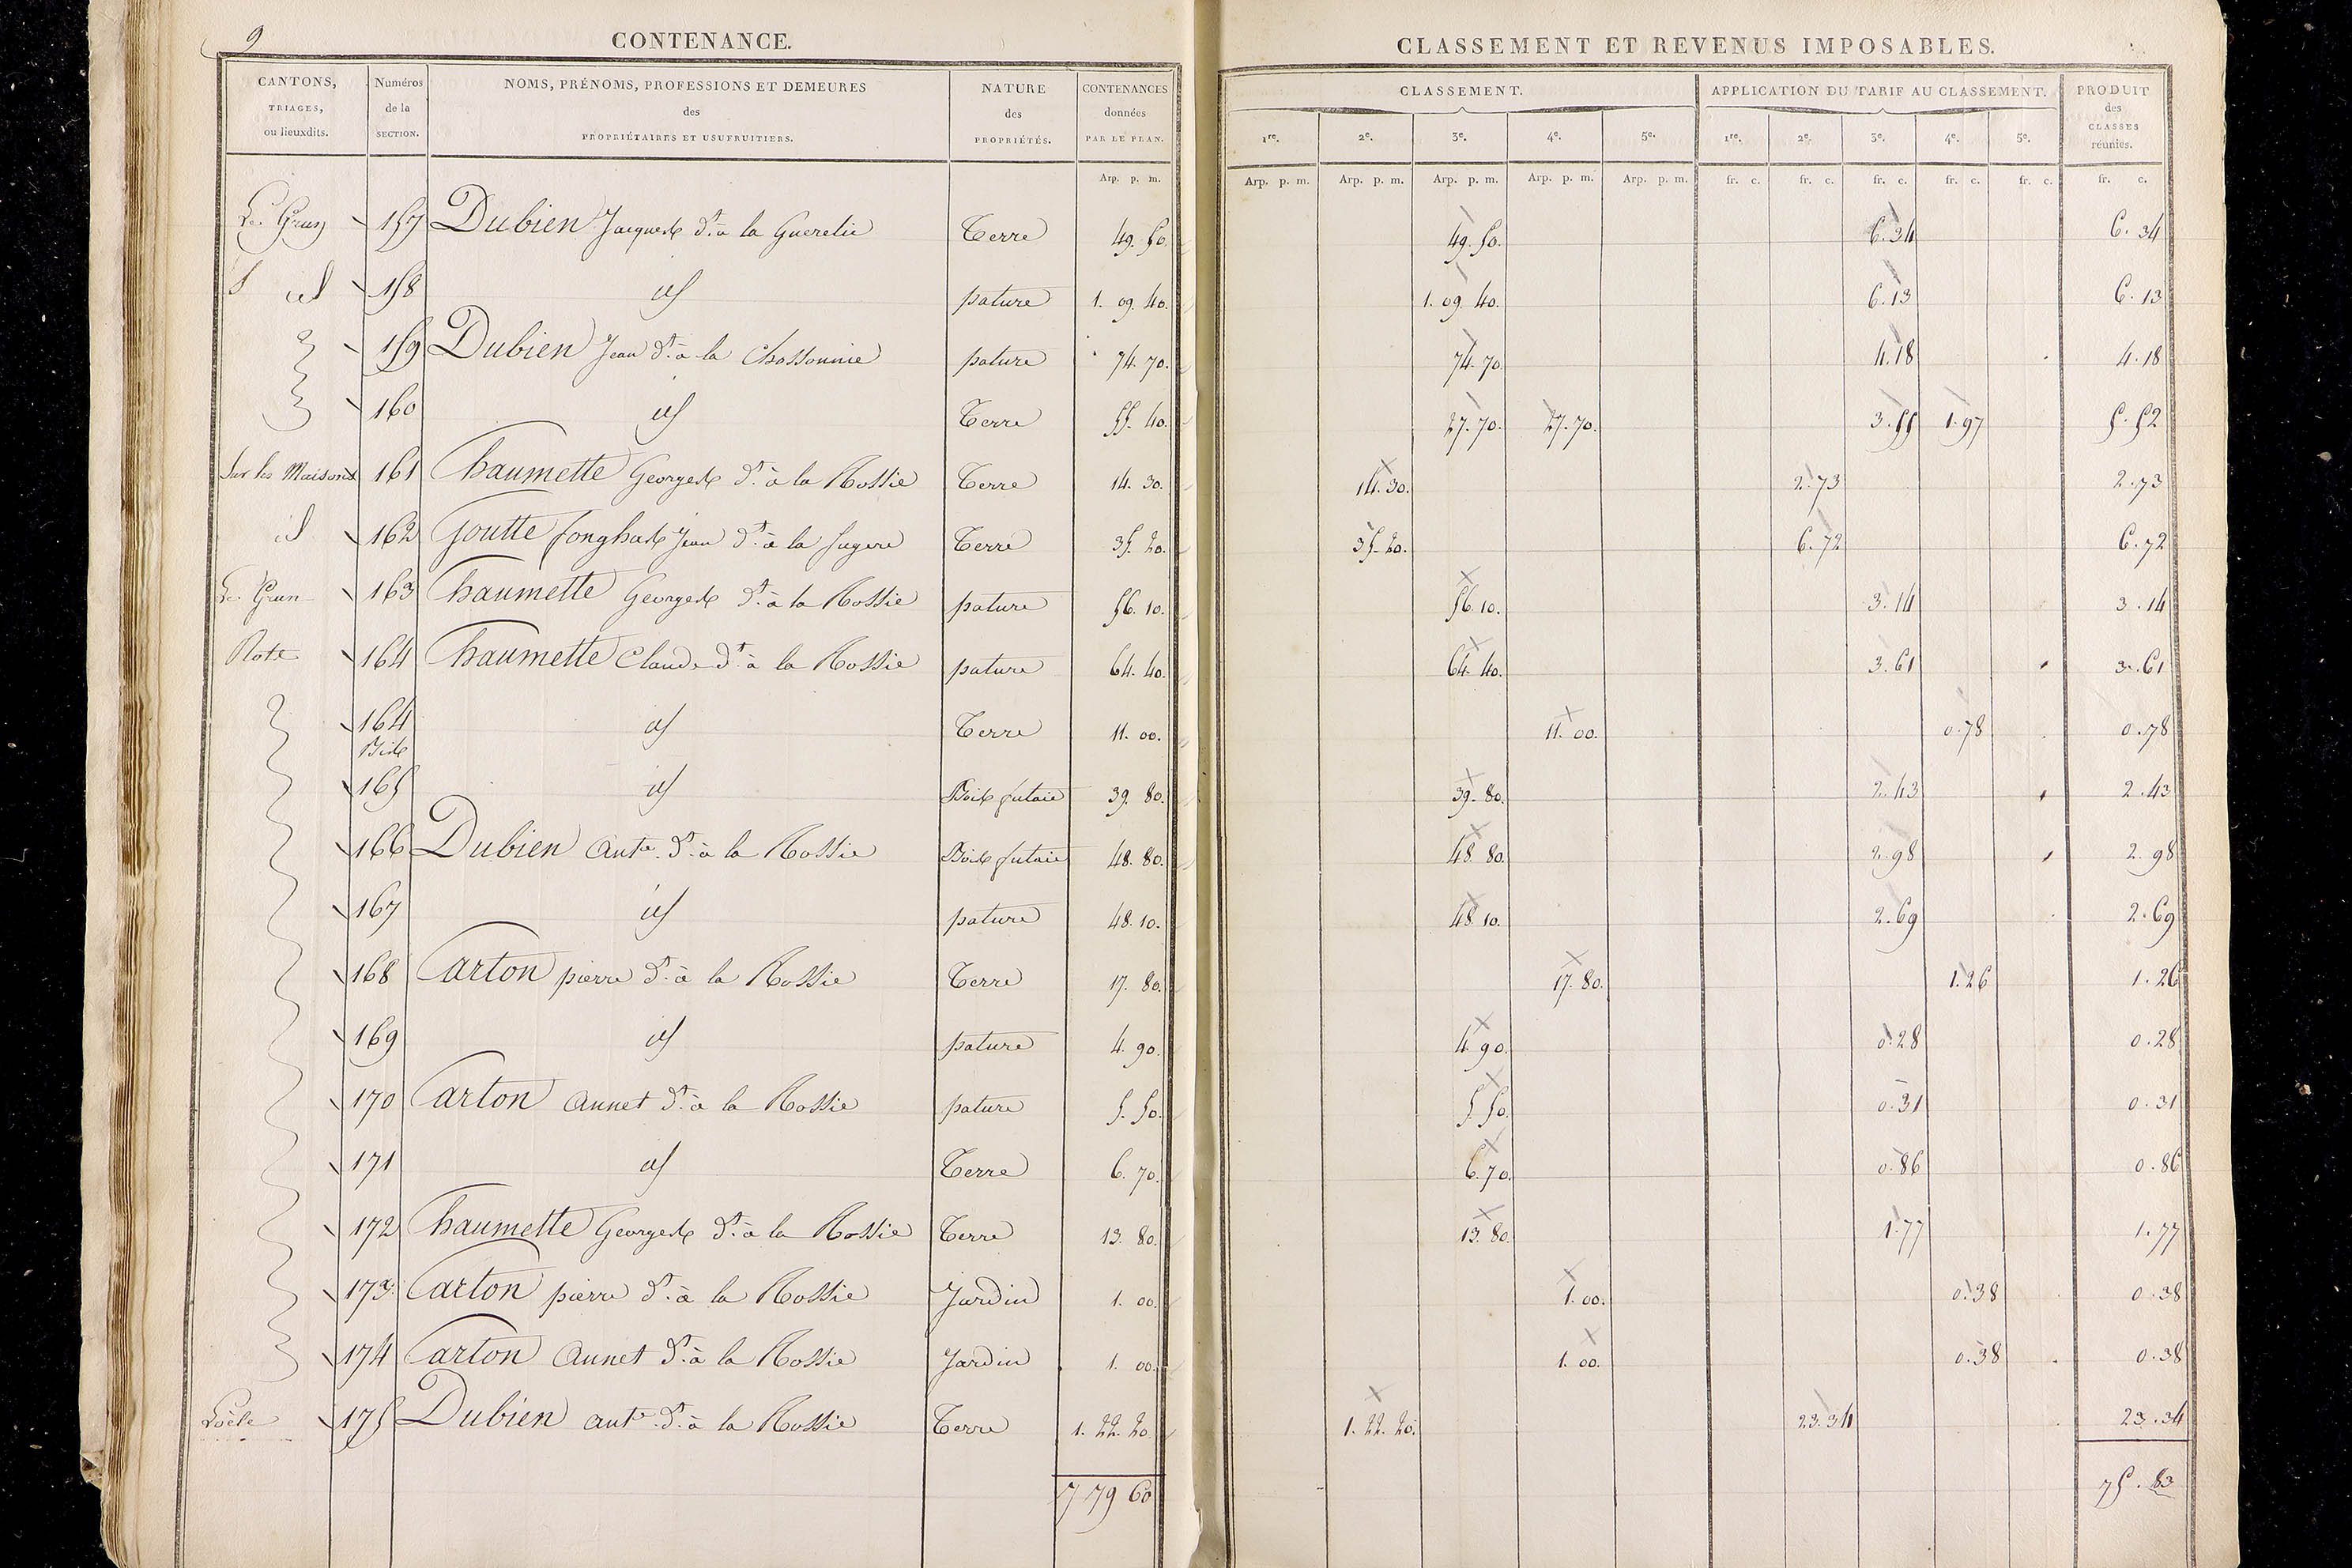 9
CONTENANCE.
CLASSEMENT ET REVENUS IMPOSABLES.
CANTONS, TRIAGES, ou lieuxdits.
Numéros de la SECTION.
NOMS, PRÉNOMS, PROFESSIONS ET DEMEURES des PROPRIÉTAIRES ET USUFRUITIERS.
NATURE des PROPRIÉTÉS.
CONTENANCES données PAR LE PLAN.
CLASSEMENT.
1re. 2e. 3e. 4e. 5e.
APPLICATION DU TARIF AU CLASSEMENT.
1re. 2e. 3e. 4e. 5e.
PRODUIT des CLASSES réunies.
Arp. p. m. Arp. p. m. Arp. p. m. Arp. p. m. Arp. p. m. Arp. p. m. fr. c. fr. c. fr. c. fr. c. fr. c. fr. c.
157 Dubien Jacques dt. à la Guerelie Terre 49. 50. 49. 50. 6.34 6.34
id 158 id pature 1. 09. 40. 1. 09. 40. 6.13 6.13
159 Dubien Jean dt. à la Chassounie pature 74. 70. 74. 70. 4.18 4.18
160 id Terre 55. 40. 27. 70. 27. 70. 3.55 1.97 5.52
Sur les Maisons 161 Chaumette Georges dt. à la Rossie Terre 14. 30. 14. 30. 2.73 2.73
id 162 Goutte fonghas Jean dt. à la fugere Terre 35. 20. 35. 20. 6.72 6.72
163 Chaumette Georges dt. à la Rossie pature 56. 10. 56. 10. 3.14 3.14
164 Chaumette Claude dt. à la Rossie pature 64. 40. 64. 40. 3.61 3.61
164 Bis id Terre 11. 00. 11. 00. 0.78 0.78
165 id Bois futaie 39. 80. 39. 80. 2.43 2.43
166 Dubien Ante. dt. à la Rossie Bois futaie 48. 80. 48. 80. 2.98 2.98
167 id pature 48. 10. 48. 10. 2.69 2.69
168 Carton pierre dt. à la Rossie Terre 17. 80. 17. 80. 1.26 1.26
169 id pature 4. 90. 4. 90. 0.28 0.28
170 Carton Annet dt. à la Rossie pature 5. 50. 5. 50. 0.31 0.31
171 id Terre 6. 70. 6. 70. 0.86 0.86
172 Chaumette Georges dt. à la Rossie Terre 13. 80. 13. 80. 1.77 1.77
173 Carton pierre dt. à la Rossie Jardin 1. 00. 1. 00. 0.38 0.38
174 Carton Annet dt. à la Rossie Jardin 1. 00. 1. 00. 0.38 0.38
175 Dubien ante. dt. à la Rossie Terre 1. 22. 20. 1. 22. 20. 23.34 23.34
7 79 60 75.83